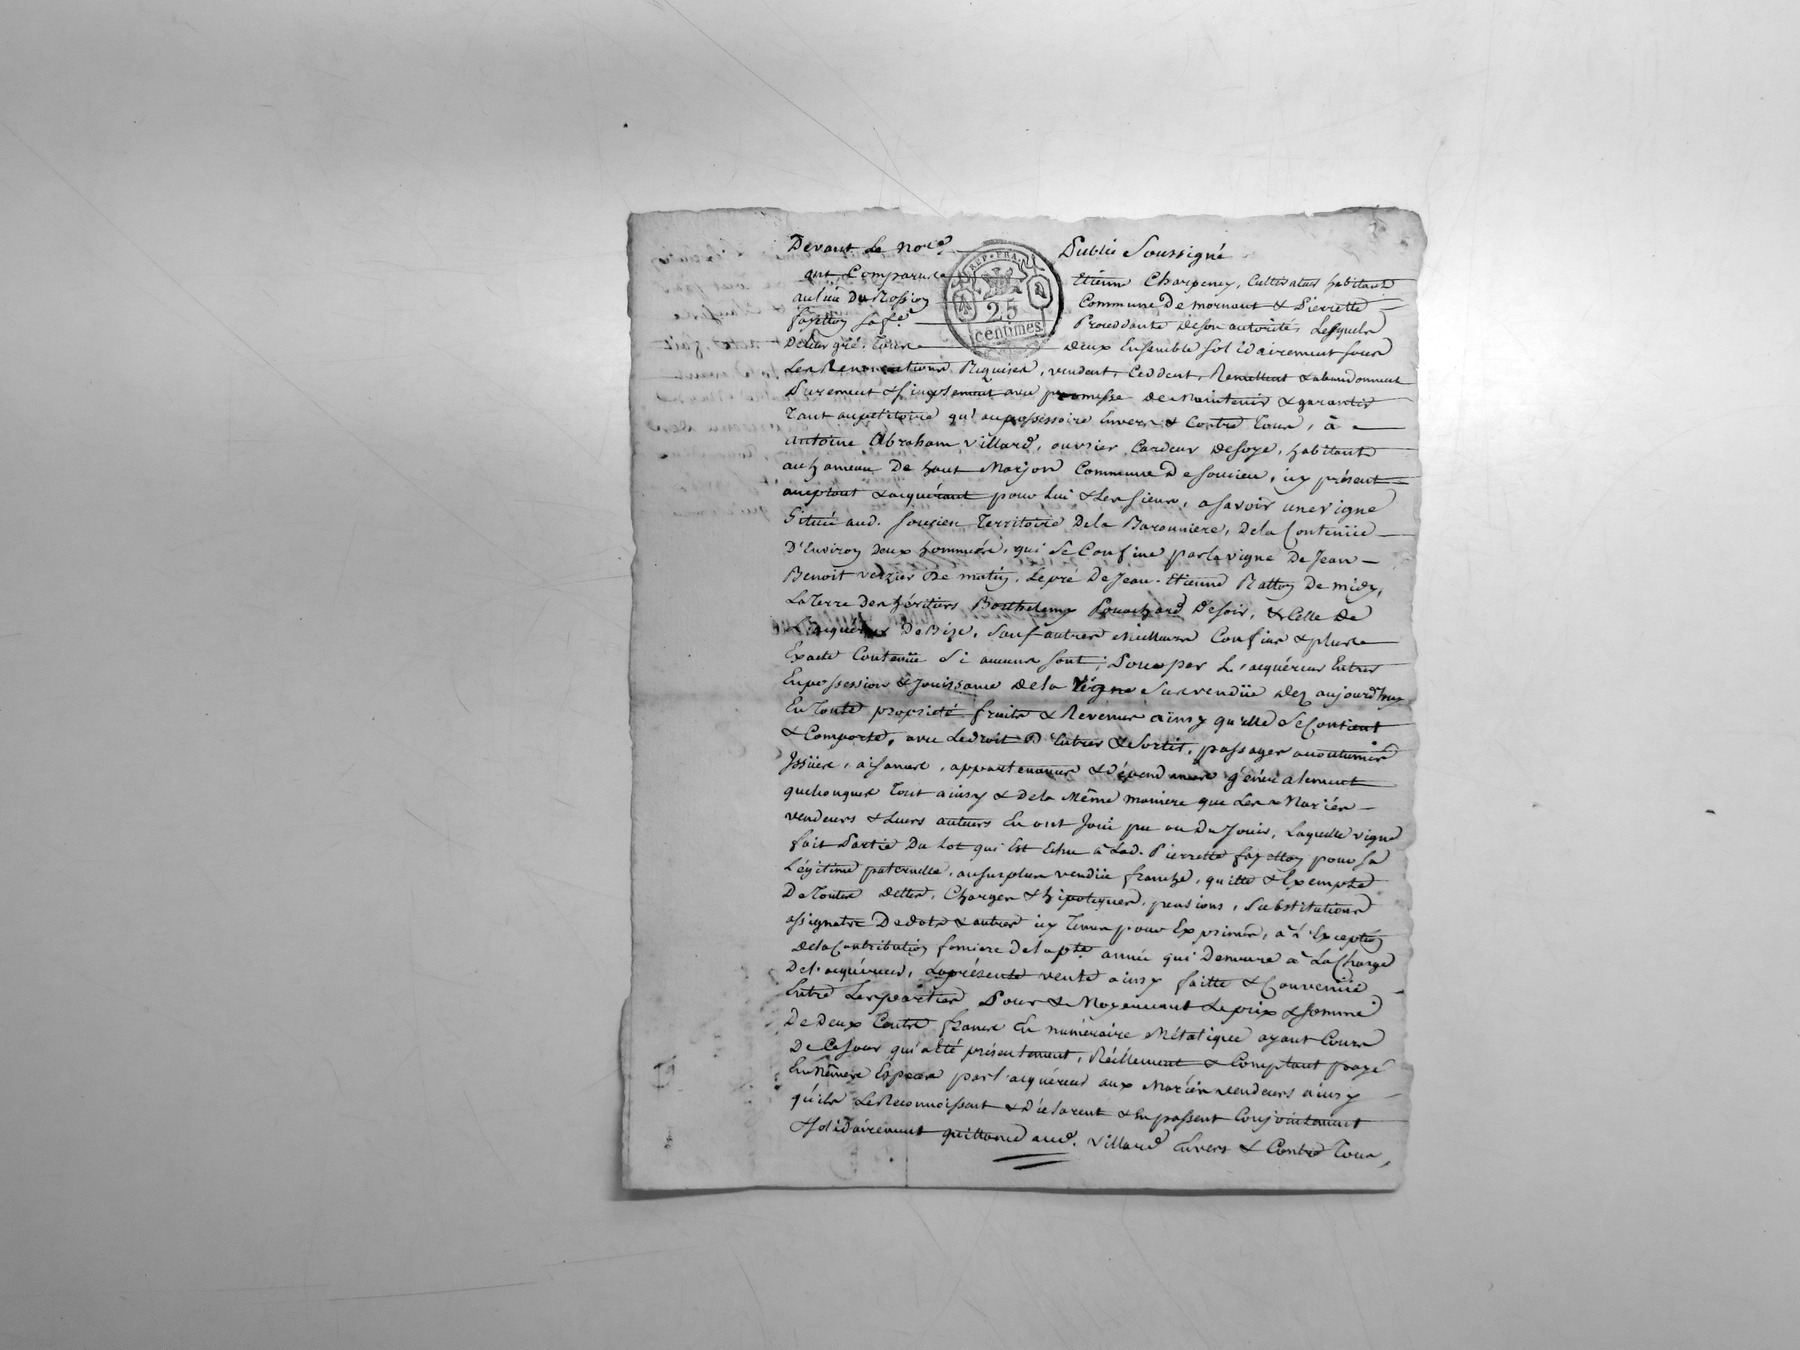 Devant Le No.re Public Soussigné
ont Comparus Etienne Charpeney, Cultivateur habitant
au lieu Du Rossion Commune De mornant & Pierrette
fayetton sa fe. Proceddante de son autorité, Lesquels
De Leur gré, Tous deux Ensemble solidairement sous
Les Renonciations Requises, vendent, Ceddent, Remettent & abandonnent
Purement & simplement avec promesse de Maintenir & garantir
Tant au petitoire qu'au possessoire Envers & Contre Tous, à
Antoine Abraham Villard, ouvrier Cardeur de soye, habitant
au hameau De haut Marjon Commune De soucieu, icy présent
acceptant & acquérant pour Lui & Les siens, a savoir une vigne
Située aud. soucieu Territoire De la Baronniere, De la Contenüe
D'Environ deux hommées, qui se Confine par la vigne De Jean
Benoit verzier De matin, Le pré De Jean-Etienne Ratton De midy,
La Terre des héritiers Barthelemy Pouchard De soir, & Celle De
L'acquéreur De Bize, sauf autres meilleurs Confins & plus
Exacte Contenüe si aucuns sont; Pour par L'acquéreur Entrer
En possession & Jouissance de la Vigne sus vendüe dez aujourd'huy
En Toute propriété fruits & Revenus ainsy qu'elle se Contient
& Comporte, avec Le droit D'Entrer & sortir, passages accoutumés
Issües, aisances, appartenances & dépendances généralement
quelconques Tout ainsy & de la Même maniere que Les Mariés
vendeurs & Leurs auteurs En ont Joui pu ou Du Jouir, Laquelle vigne
fait Partie Du Lot qui Est Echu à Lad. Pierrette fayetton pour sa
Légitime paternelle, au surplus vendüe franche, quitte & Exempte
De Toutes dettes, Charges & hipoteques, pensions, substitutions
assignats De dots & autres icy Tenus pour Exprimés, à L'Exception
de la Contribution fonciere de la pte. année qui Demeure à La Charge
De L'acquéreur, La présente vente ainsy faitte & Convenüe
Entre Les parties Pour & Moyennant Le prix & somme
De Deux Cents francs En numéraire Métalique ayant Cours
De Ce Jour qui a Eté présentement, Réellement & Comptant payé
En Mêmes Espèces par L'acquéreur aux Mariés vendeurs ainsy
qu'ils Le Reconnoissent & Déclarent & En passent Conjointement
& solidairement quittance aud. Villard Envers & Contre Tous,
REP. FRA.
25
centimes